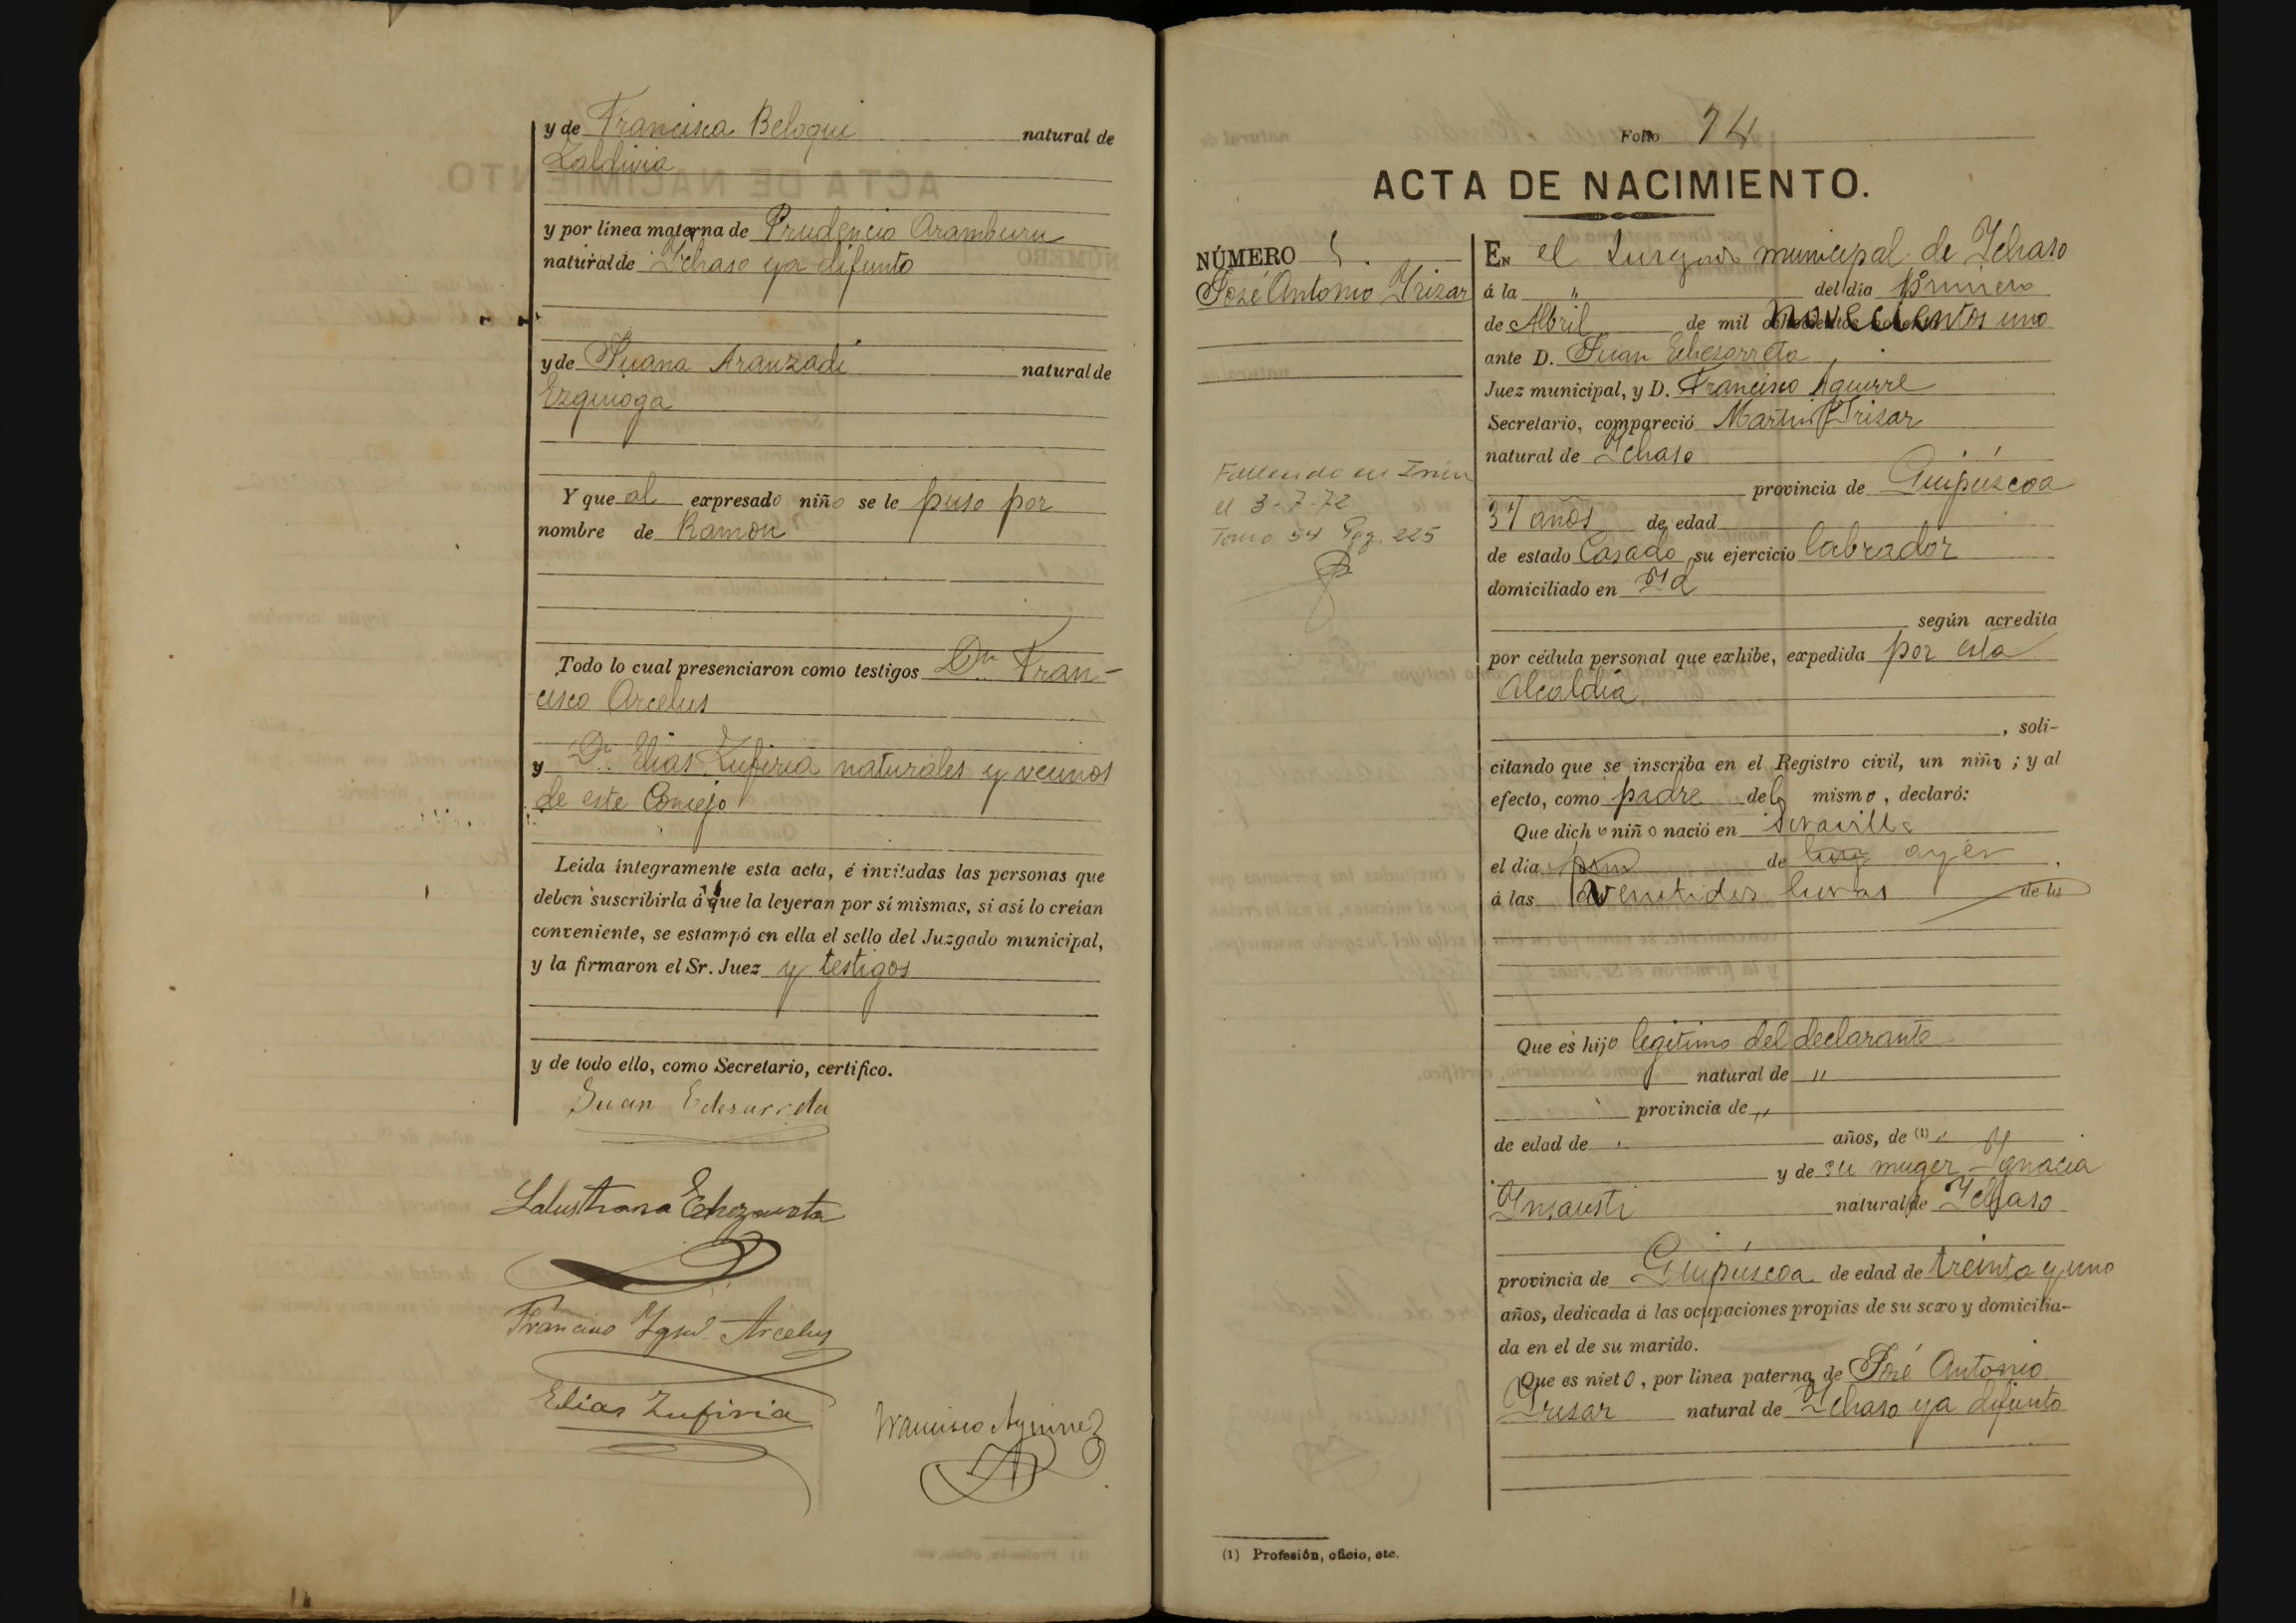 y de Francisca Beloqui natural de
Zaldivia
y por línea materna de Prudencio Aramburu
natural de Ychaso ya difunto
y de Juana Aranzadi natural de
Ezquioga
Y que al expresado niño se le puso por
nombre de Ramon
Todo lo cual presenciaron como testigos Dn Fran-
cisco Arcelus
y Dn Elias Zufiria naturales y vecinos
de este Concejo
Leída íntegramente esta acta, é invitadas las personas que
deben suscribirla á que la leyeran por sí mismas, si así lo creían
conveniente, se estampó en ella el sello del Juzgado municipal,
y la firmaron el Sr. Juez y testigos
y de todo ello, como Secretario, certifico.
Juan Echezarreta
Echezarreta
Francisco Arcelus
Elias Zufiria
Francisco Aguirre
Folio 74
ACTA DE NACIMIENTO.
NÚMERO 5.
José Antonio Yrizar
Fallecido en Irún
el 3-7-72
Tomo 54 Pag. 225
EN el Juzgado municipal de Ychaso
á la " del dia primero
de Abril de mil novecientos uno
ante D. Juan Echezarreta
Juez municipal, y D. Francisco Aguirre
Secretario, compareció Martin Yrizar
natural de Ychaso
provincia de Guipúzcoa
37 años de edad
de estado Casado su ejercicio labrador
domiciliado en Yd
según acredita
por cédula personal que exhibe, expedida por esta
Alcaldia
, soli-
citando que se inscriba en el Registro civil, un niño ; y al
efecto, como padre del mismo , declaró:
Que dicho niño nació en
el dia de ayer
á las veintidos horas de la
Que es hijo legitimo del declarante
natural de "
provincia de "
de edad de " años, de (1) "
y de su muger Ygnacia
Ynsausti natural de Ychaso
provincia de Guipúzcoa de edad de treinta y uno
años, dedicada á las ocupaciones propias de su sexo y domicilia-
da en el de su marido.
Que es nieto , por línea paterna de José Antonio
Yrizar natural de Ychaso ya difunto
(1) Profesión, oficio, etc.